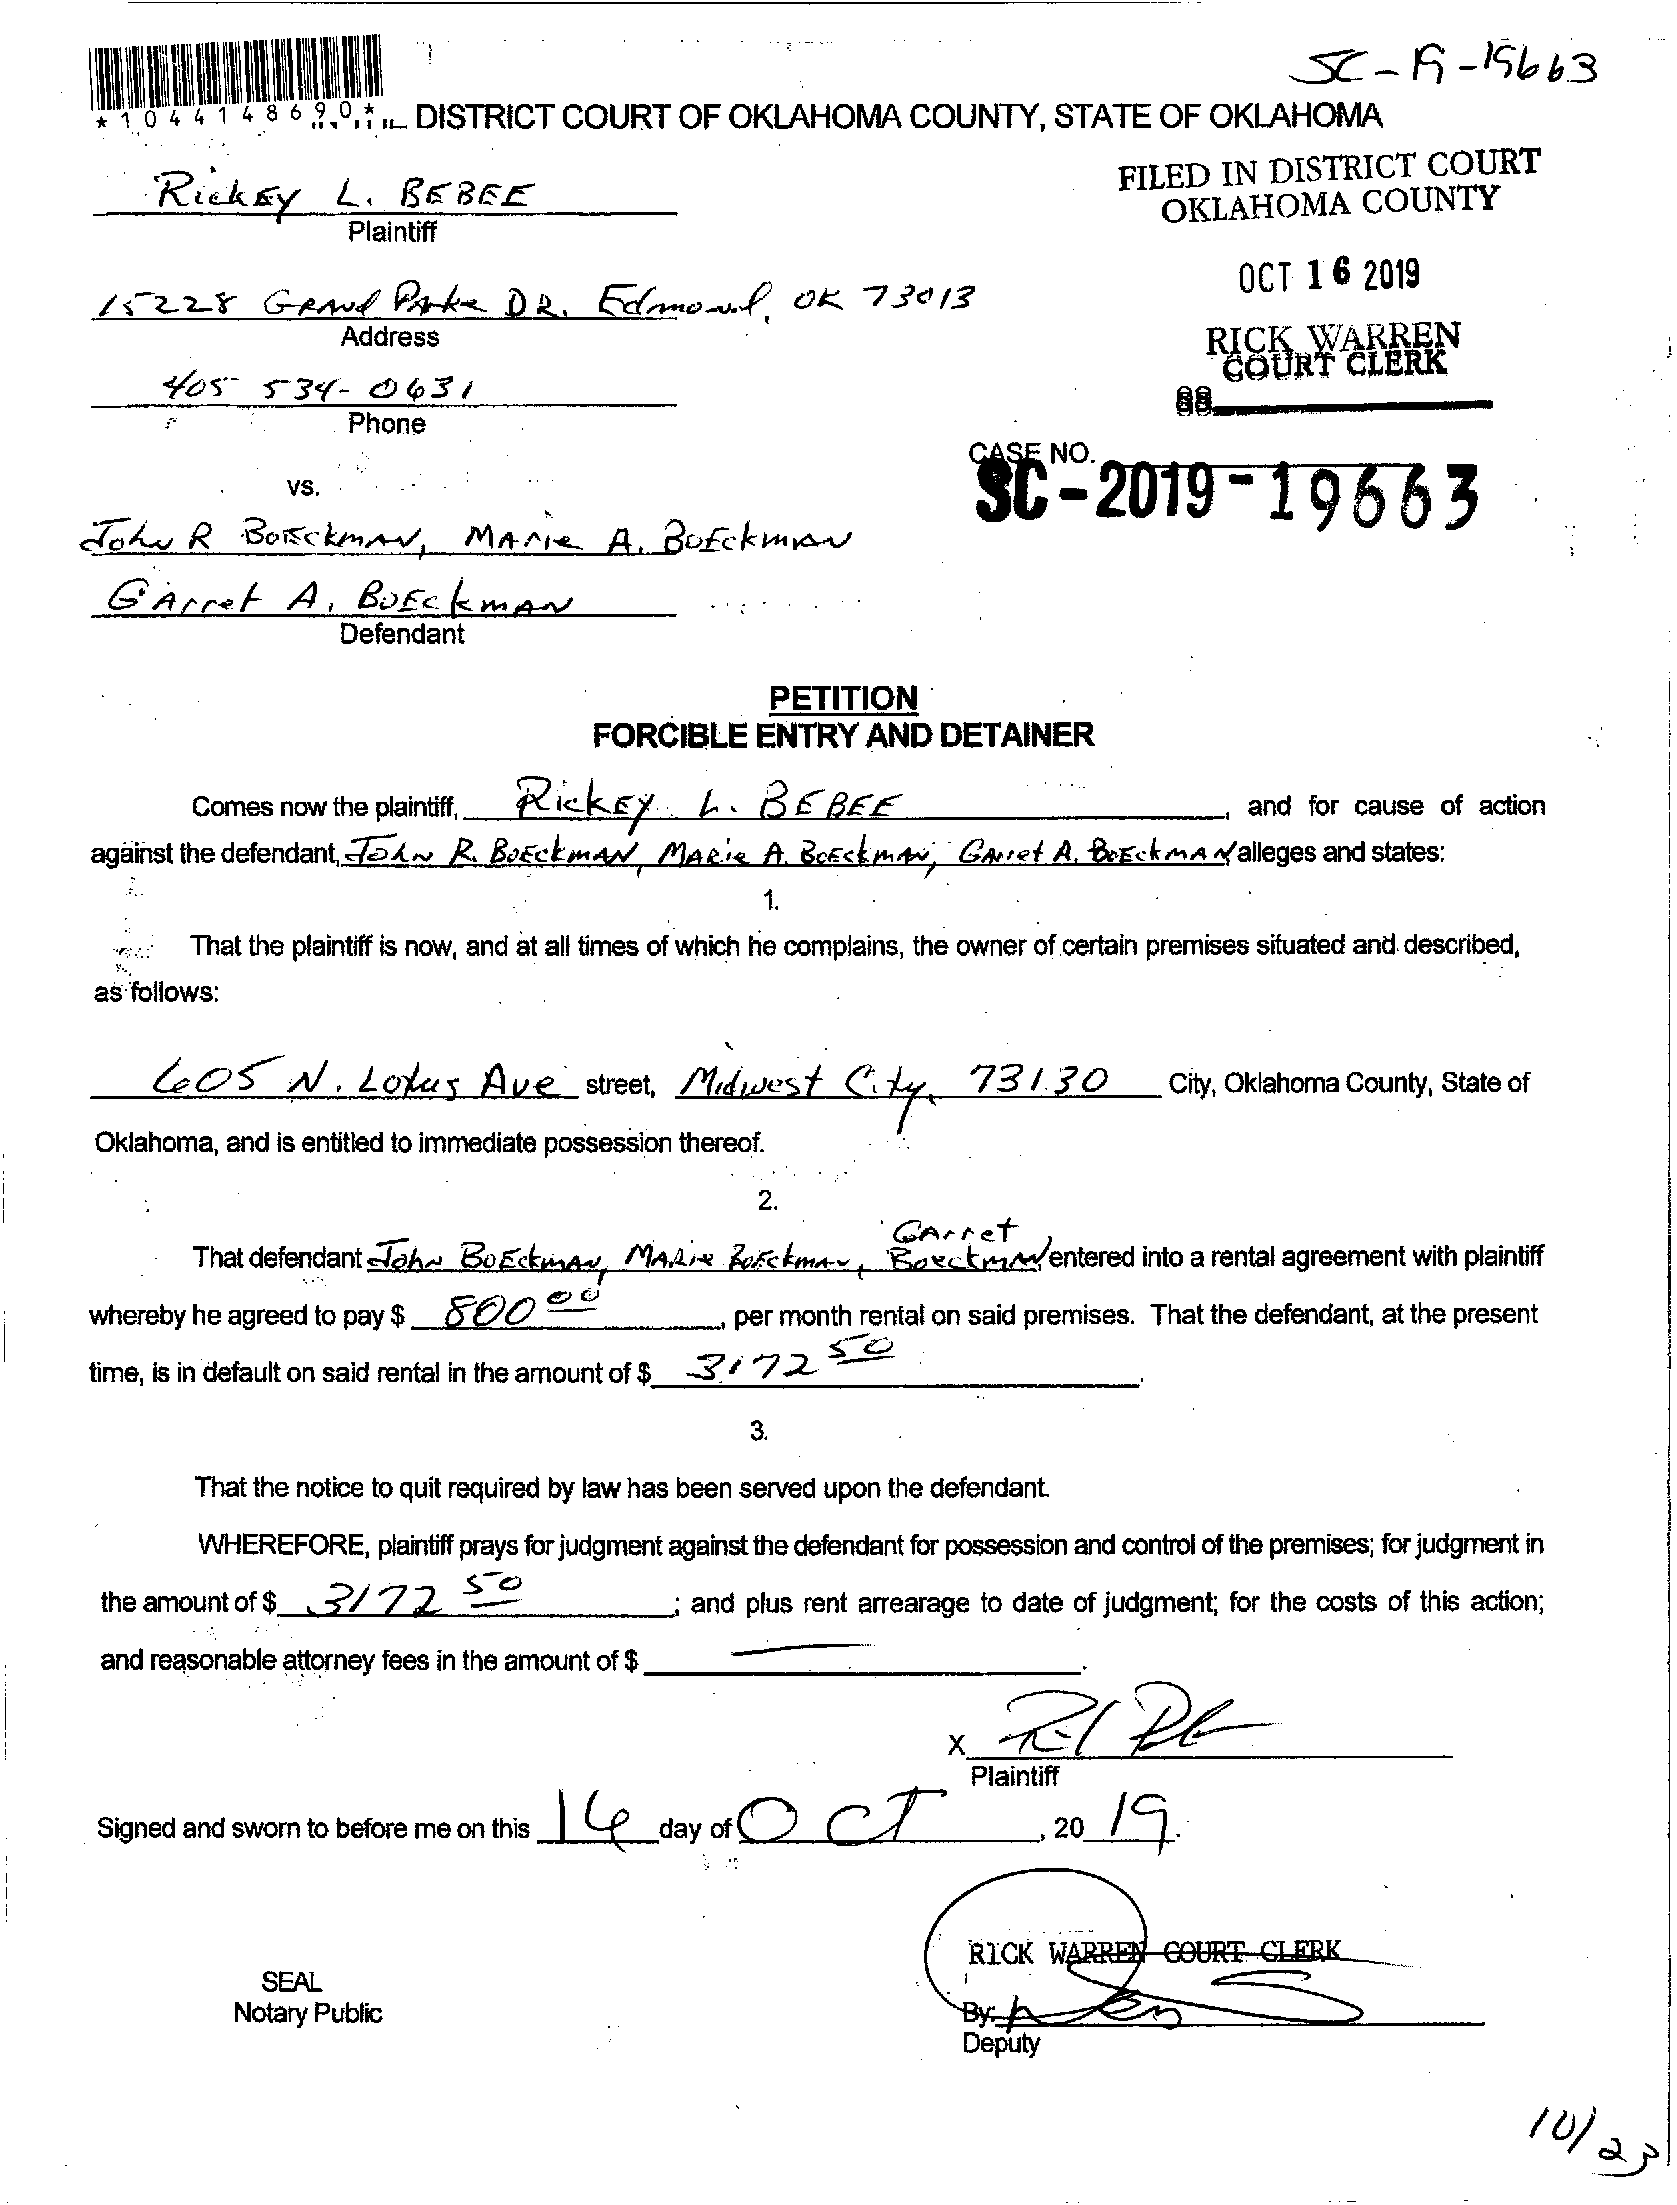 SC-19-19663
*1044148690*
DISTRICT COURT OF OKLAHOMA COUNTY, STATE OF OKLAHOMA
FILED IN DISTRICT COURT
OKLAHOMA COUNTY
Rickey L. BEBEE
Plaintiff
OCT 16 2019
15228 Grand Parke DR. Edmond, OK 73013
Address
RICK WARREN
COURT CLERK
405 534-0631
88
Phone
CASE NO.
SC-2019-19663
vs.
John R Boeckman, Marie A. Boeckman
Garret A. Boeckman
Defendant
PETITION
FORCIBLE ENTRY AND DETAINER
Comes now the plaintiff, Rickey L. BEBEE, and for cause of action
against the defendant, John R. Boeckman, Marie A. Boeckman, Garret A. Boeckman alleges and states:
1.
That the plaintiff is now, and at all times of which he complains, the owner of certain premises situated and described,
as follows:
605 N. Lotus Ave street, Midwest City, 73130 City, Oklahoma County, State of
Oklahoma, and is entitled to immediate possession thereof.
2.
Garret
That defendant John Boeckman, Marie Boeckman, Boeckman entered into a rental agreement with plaintiff
whereby he agreed to pay $ 800 00, per month rental on said premises. That the defendant, at the present
time, is in default on said rental in the amount of $ 3172 50.
3.
That the notice to quit required by law has been served upon the defendant.
WHEREFORE, plaintiff prays for judgment against the defendant for possession and control of the premises; for judgment in
the amount of $ 3172 50; and plus rent arrearage to date of judgment; for the costs of this action;
and reasonable attorney fees in the amount of $ —.
X
Plaintiff
Signed and sworn to before me on this 16 day of OCT, 20 19.
RICK WARREN COURT CLERK
SEAL
Notary Public
By:
Deputy
10/23